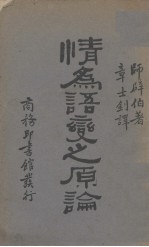 師辟伯著
章士釗譯
情為語變之原論
商務印書館發行